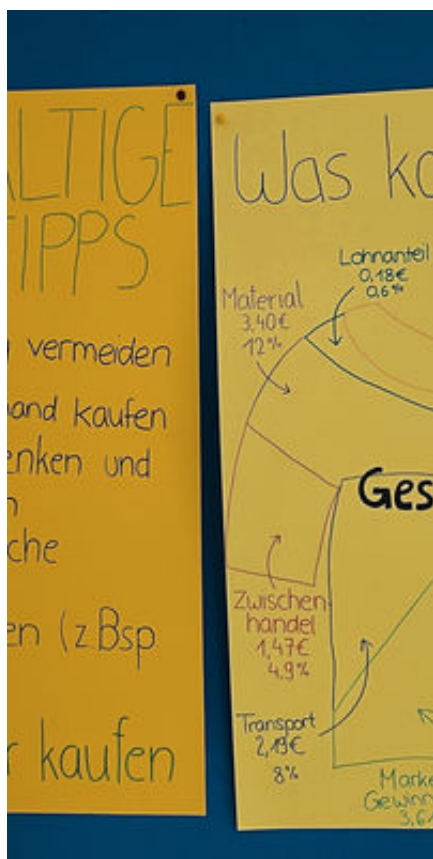 ALTIGE
TIPPS
vermeiden
and kaufen
enken und
n
che
en (z.Bsp.
r kaufen
Was ko
Lohnanteil
0,18€
0,6%
Material
3,40€
12%
Ges
Zwischen-
handel
1,47€
4,9%
Transport
2,19€
8%
Marke
Gewinn
3,61